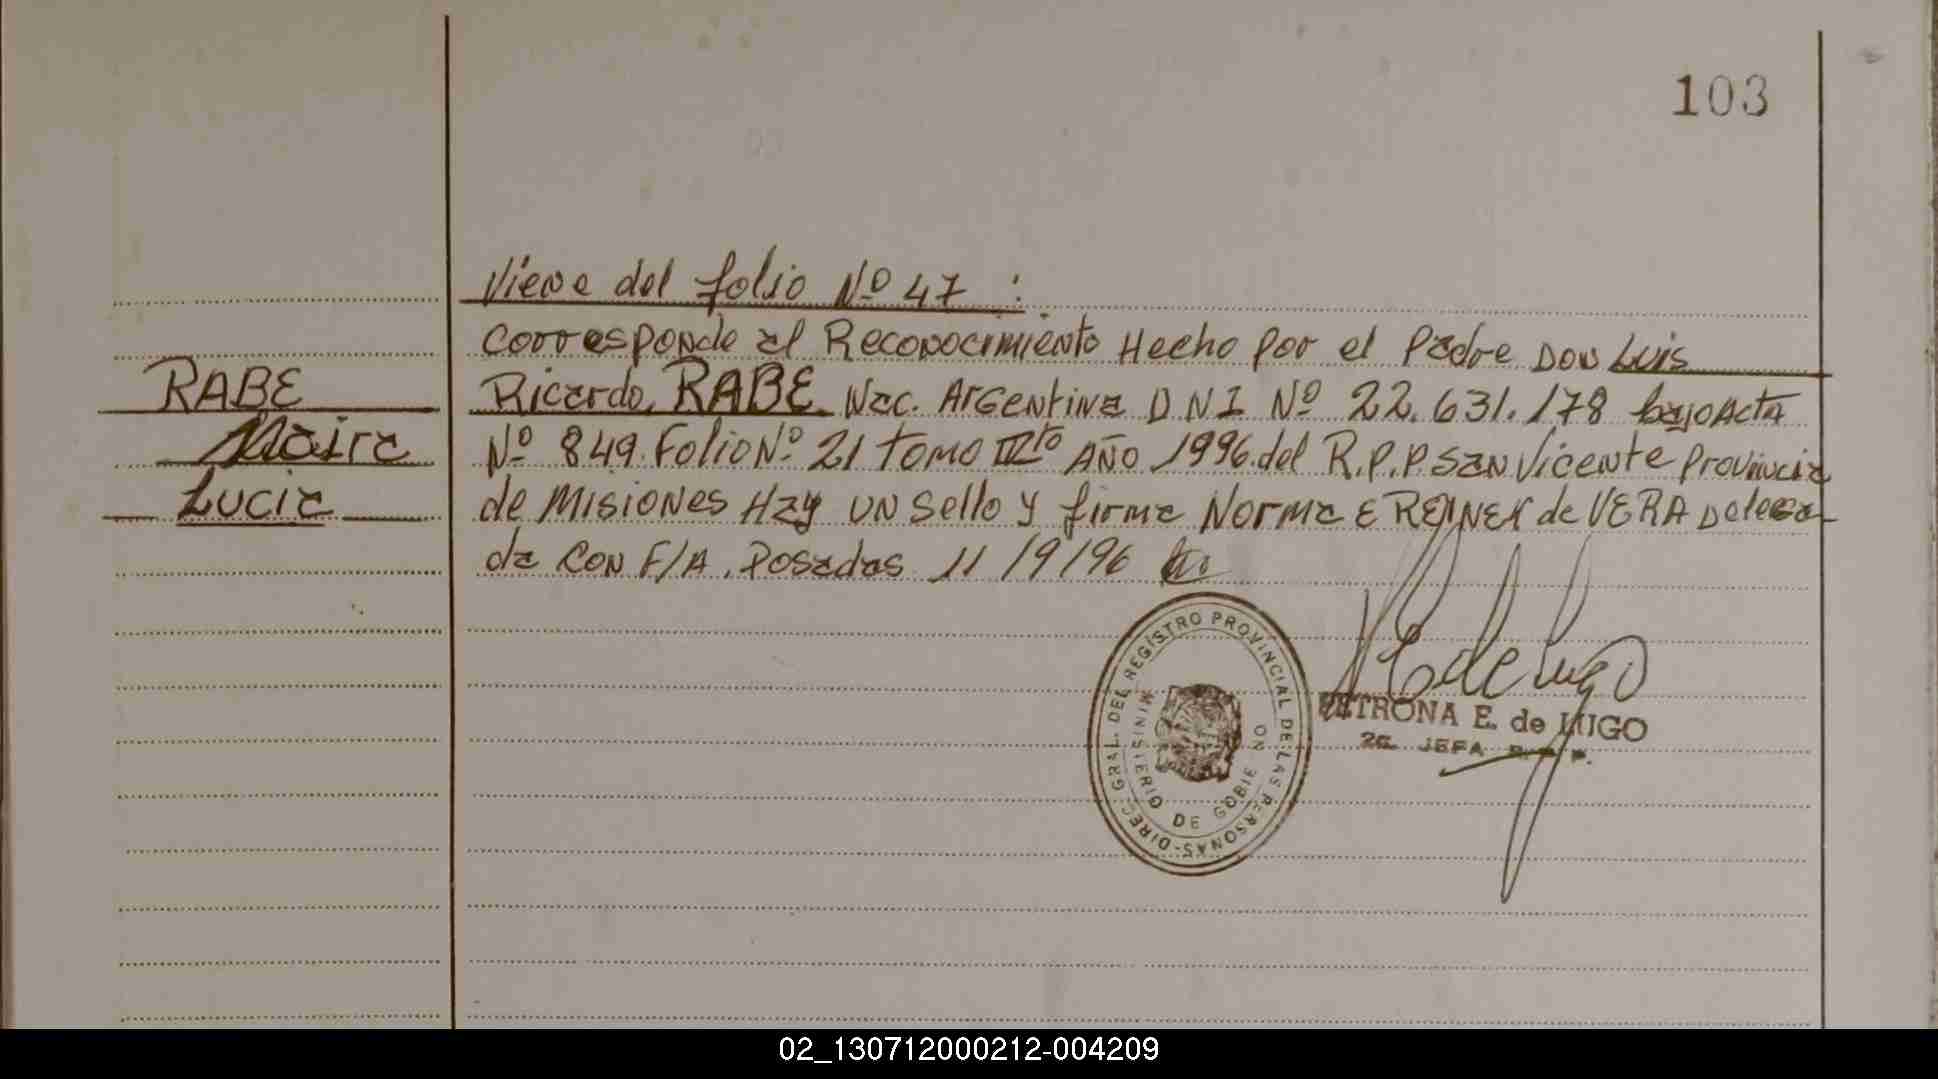 103
Viene del folio Nº 47 :
Corresponde al Reconocimiento Hecho por el Padre DON Luis
RABE
Ricardo RABE Nac. Argentina D N I Nº 22.631.178 bajo Acta
Maira
Nº 849 Folio Nº 21 tomo IVto AÑO 1996 del R.P.P SAN Vicente Provincia
Lucia
de MISIONES Hay UN Sello y firma Norma E de VERA Delega
da CON F/A. Posadas 11/9/96
DIREC. GRAL. DEL REGISTRO PROVINCIAL DE LAS PERSONAS
MINISTERIO DE GOBIERNO
PETRONA E. de LUGO
2a. JEFA
02_130712000212-004209